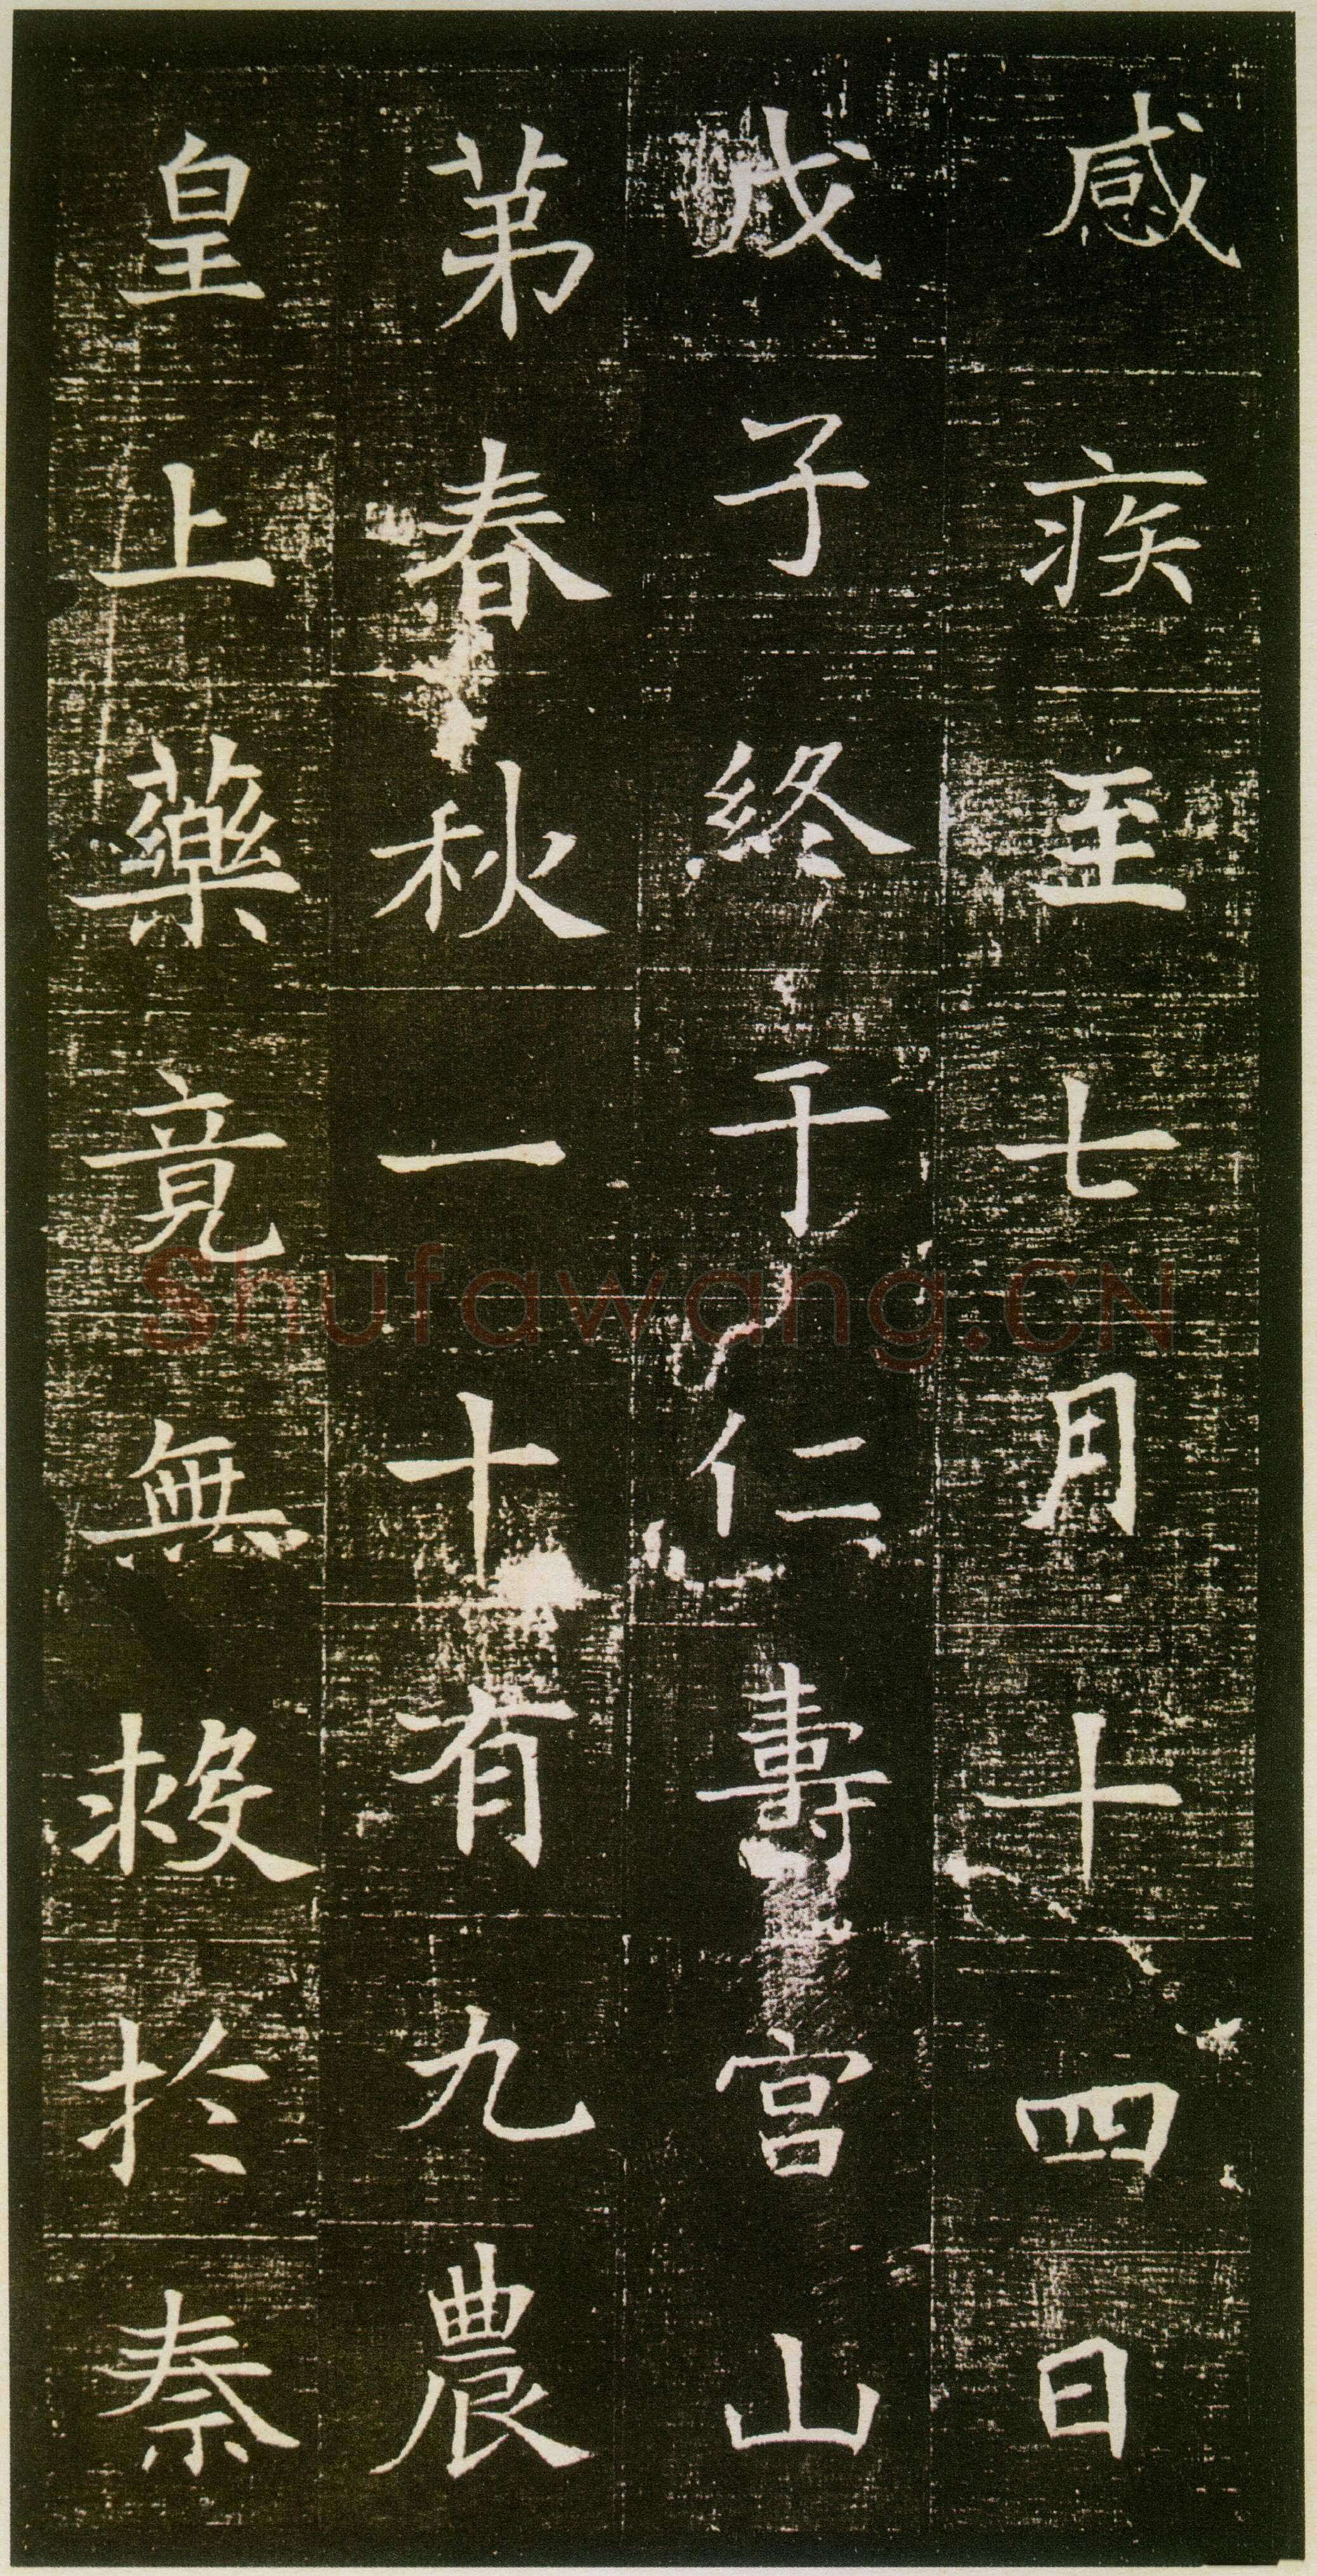 感疾至七月十四日
戊子終于仁壽宮山
苐春秋一十有九農
皇上藥竟無救於秦
Shufawang.CN